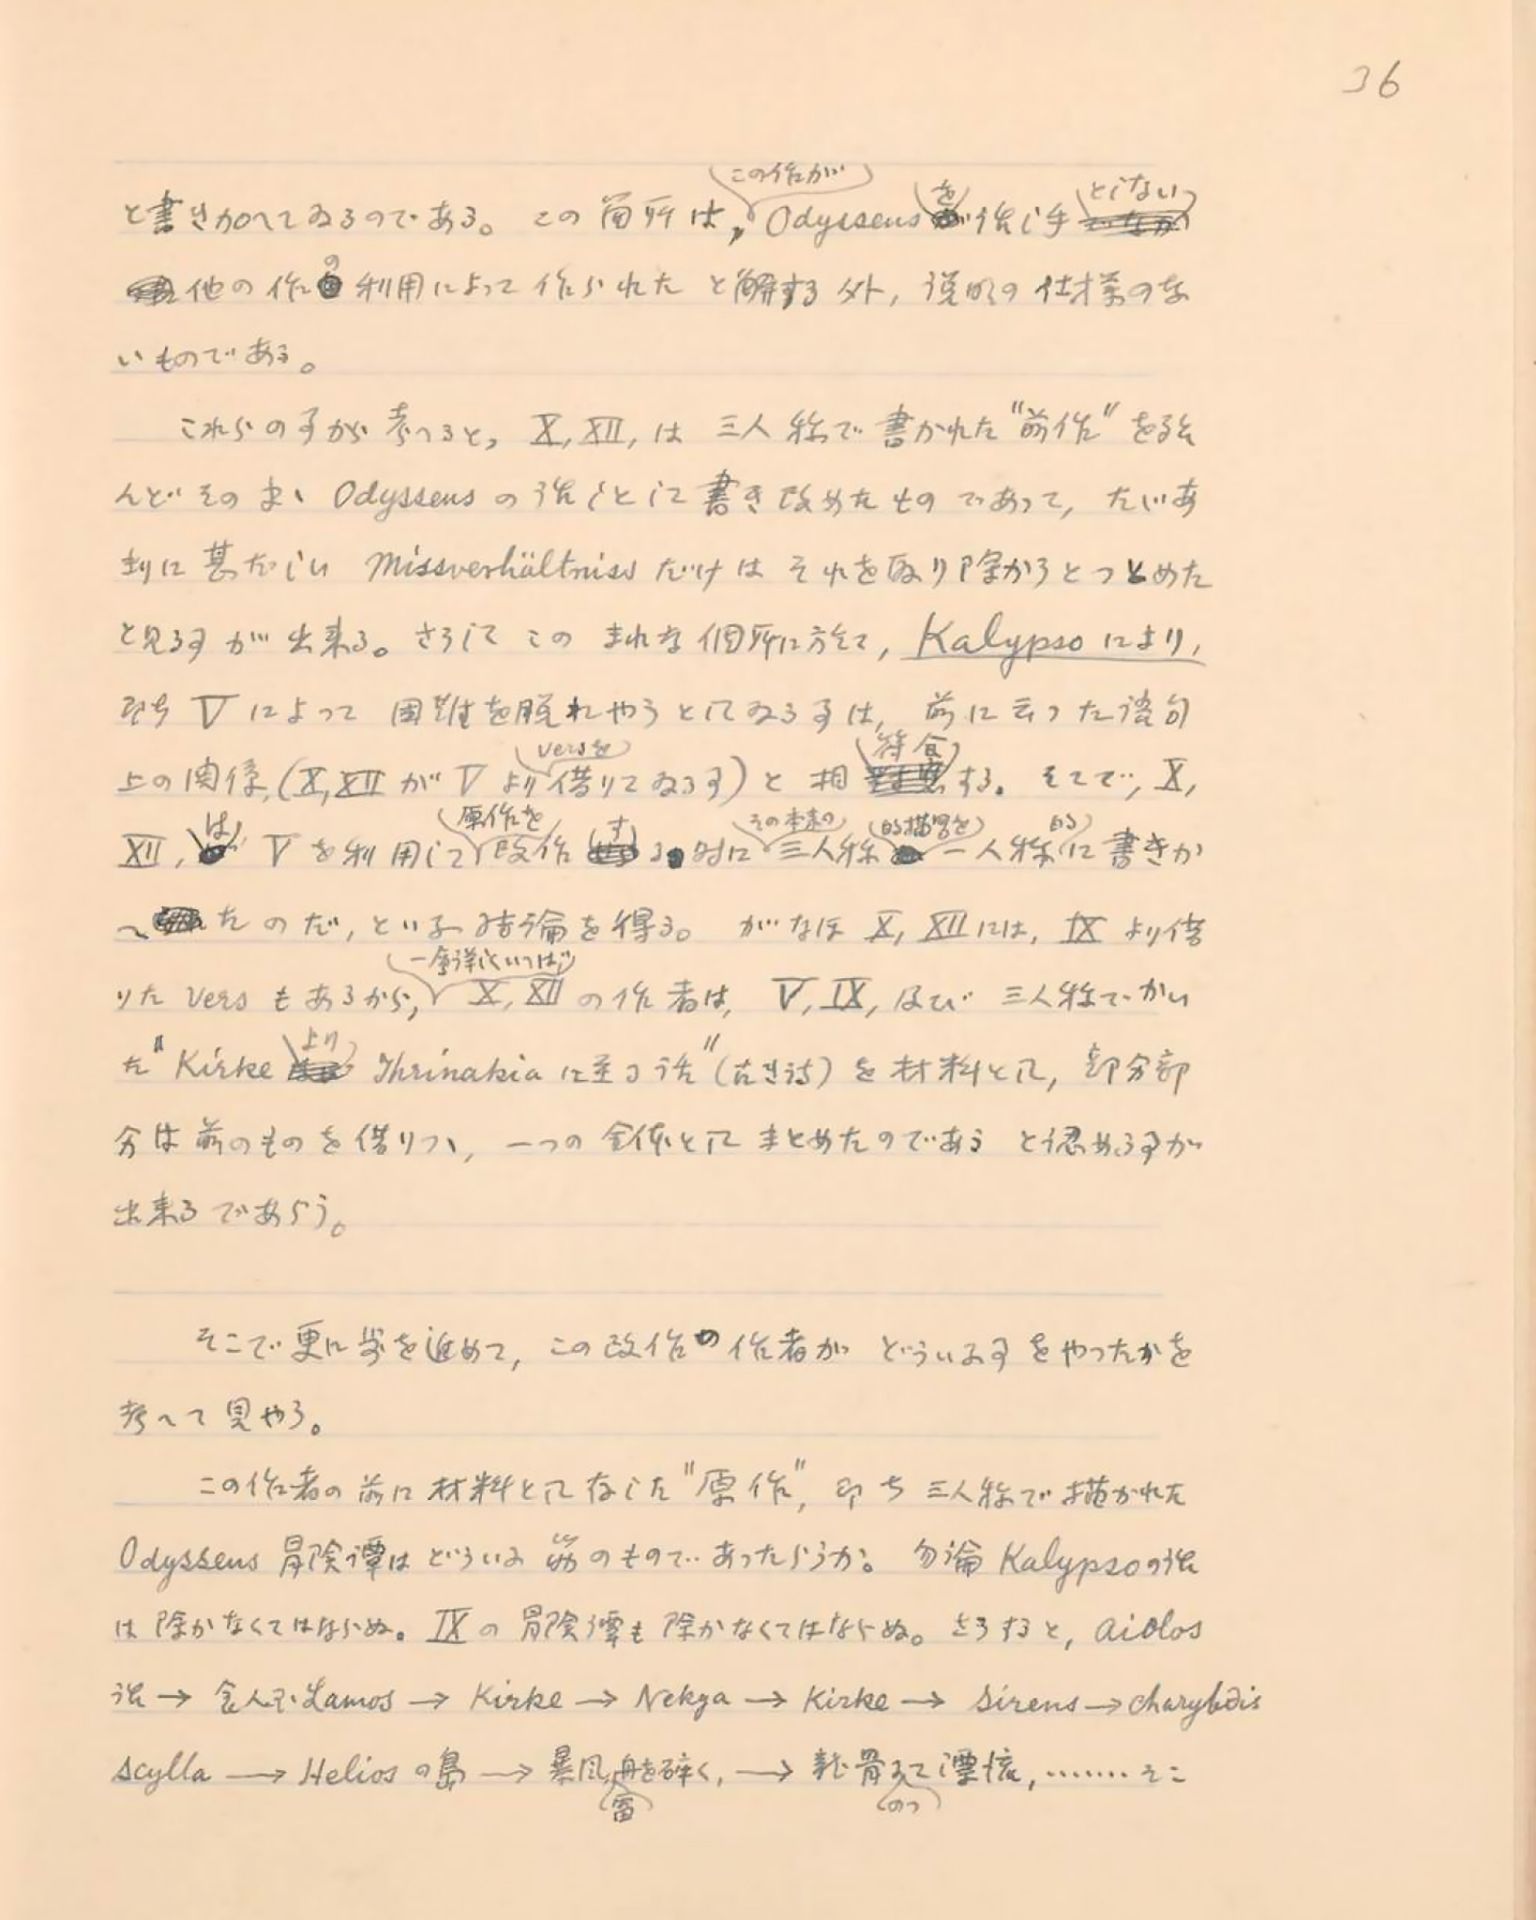 36
と書き加へてゐるのである。この箇所は、この作がOdysseusを話し手としない
他の作の利用によって作られたと解する外,説明の仕様のな
いものである。
これらの事から考へると、X, XII, は三人称で書かれた"前作"を殆
んどそのまゝOdysseusの話しとして書き改めたものであって,たゞあ
まりに甚だしいMissverhältnissだけはそれを取り除かうとつとめた
と見る事が出来る。さうしてこのまれな個所に於て, Kalypsoにより,
即ちVによって困難を脱れやうとしてゐる事は,前に云った語句
上の関係,(X, XIIがVよりversを借りてゐる事)と相符合する。そこで, X,
XII,は Vを利用して原作を改作する時にその本来の三人称的描写を一人称的に書きか
へたのだ,といふ結論を得る。がなほX, XIIには, IXより借
りたversもあるから,一層詳しくいへばX, XIIの作者は, V, IX, 及び三人称でかい
た"KirkeよりThrinakiaに至る話"(古き詩)を材料として,部分部
分は前のものを借りつゝ,一つの全体としてまとめたのであると認める事が
出来るであらう。
そこで更に歩を進めて,この改作の作者がどういふ事をやったかを
考へて見やう。
この作者の前に材料として存した"原作",即ち三人称で描かれた
Odysseus冒険譚はどういふ筋のものであったらうか。勿論Kalypsoの話
は除かなくてはならぬ。IXの冒険譚も除かなくてはならぬ。さうすると, Aiolos
話→食人子Lamos→Kirke→Nekya→Kirke→Sirens→Charybdis
Scylla→Heliosの島→暴風雷舟を砕く,→龍骨にのって漂流,.......そこ